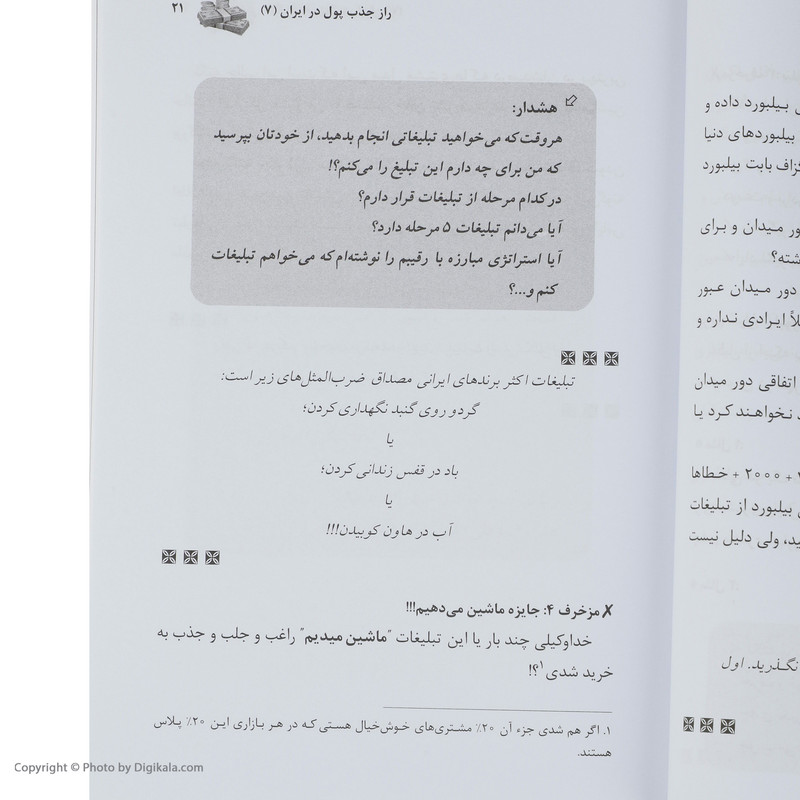 راز جذب پول در ایران (۷)
۲۱
هشدار:
هروقت که می‌خواهید تبلیغاتی انجام بدهید، از خودتان بپرسید
که من برای چه دارم این تبلیغ را می‌کنم؟!
در کدام مرحله از تبلیغات قرار دارم؟
آیا می‌دانم تبلیغات ۵ مرحله دارد؟
آیا استراتژی مبارزه با رقیبم را نوشته‌ام که می‌خواهم تبلیغات
کنم و...؟
تبلیغات اکثر برندهای ایرانی مصداق ضرب‌المثل‌های زیر است:
گردو روی گنبد نگهداری کردن؛
یا
باد در قفس زندانی کردن؛
یا
آب در هاون کوبیدن!!!
✗ مزخرف ۴: جایزه ماشین می‌دهیم!!!
خداوکیلی چند بار یا این تبلیغات "ماشین میدیم" راغب و جلب و جذب به
خرید شدی۱؟!
۱. اگر هم شدی جزء آن ۲۰٪ مشتری‌های خوش‌خیال هستی که در هر بازاری این ۲۰٪ پلاس
هستند.
بیلبورد داده و
بیلبوردهای دنیا
گزاف بابت بیلبورد
ور میدان و برای
شته؟
دور میدان عبور
لاً ایرادی نداره و
اتفاقی دور میدان
نخواهند کرد یا
+ ۲۰۰۰ + خطاها
بیلبورد از تبلیغات
ید، ولی دلیل نیست
نگذرید. اول
Copyright © Photo by Digikala.com